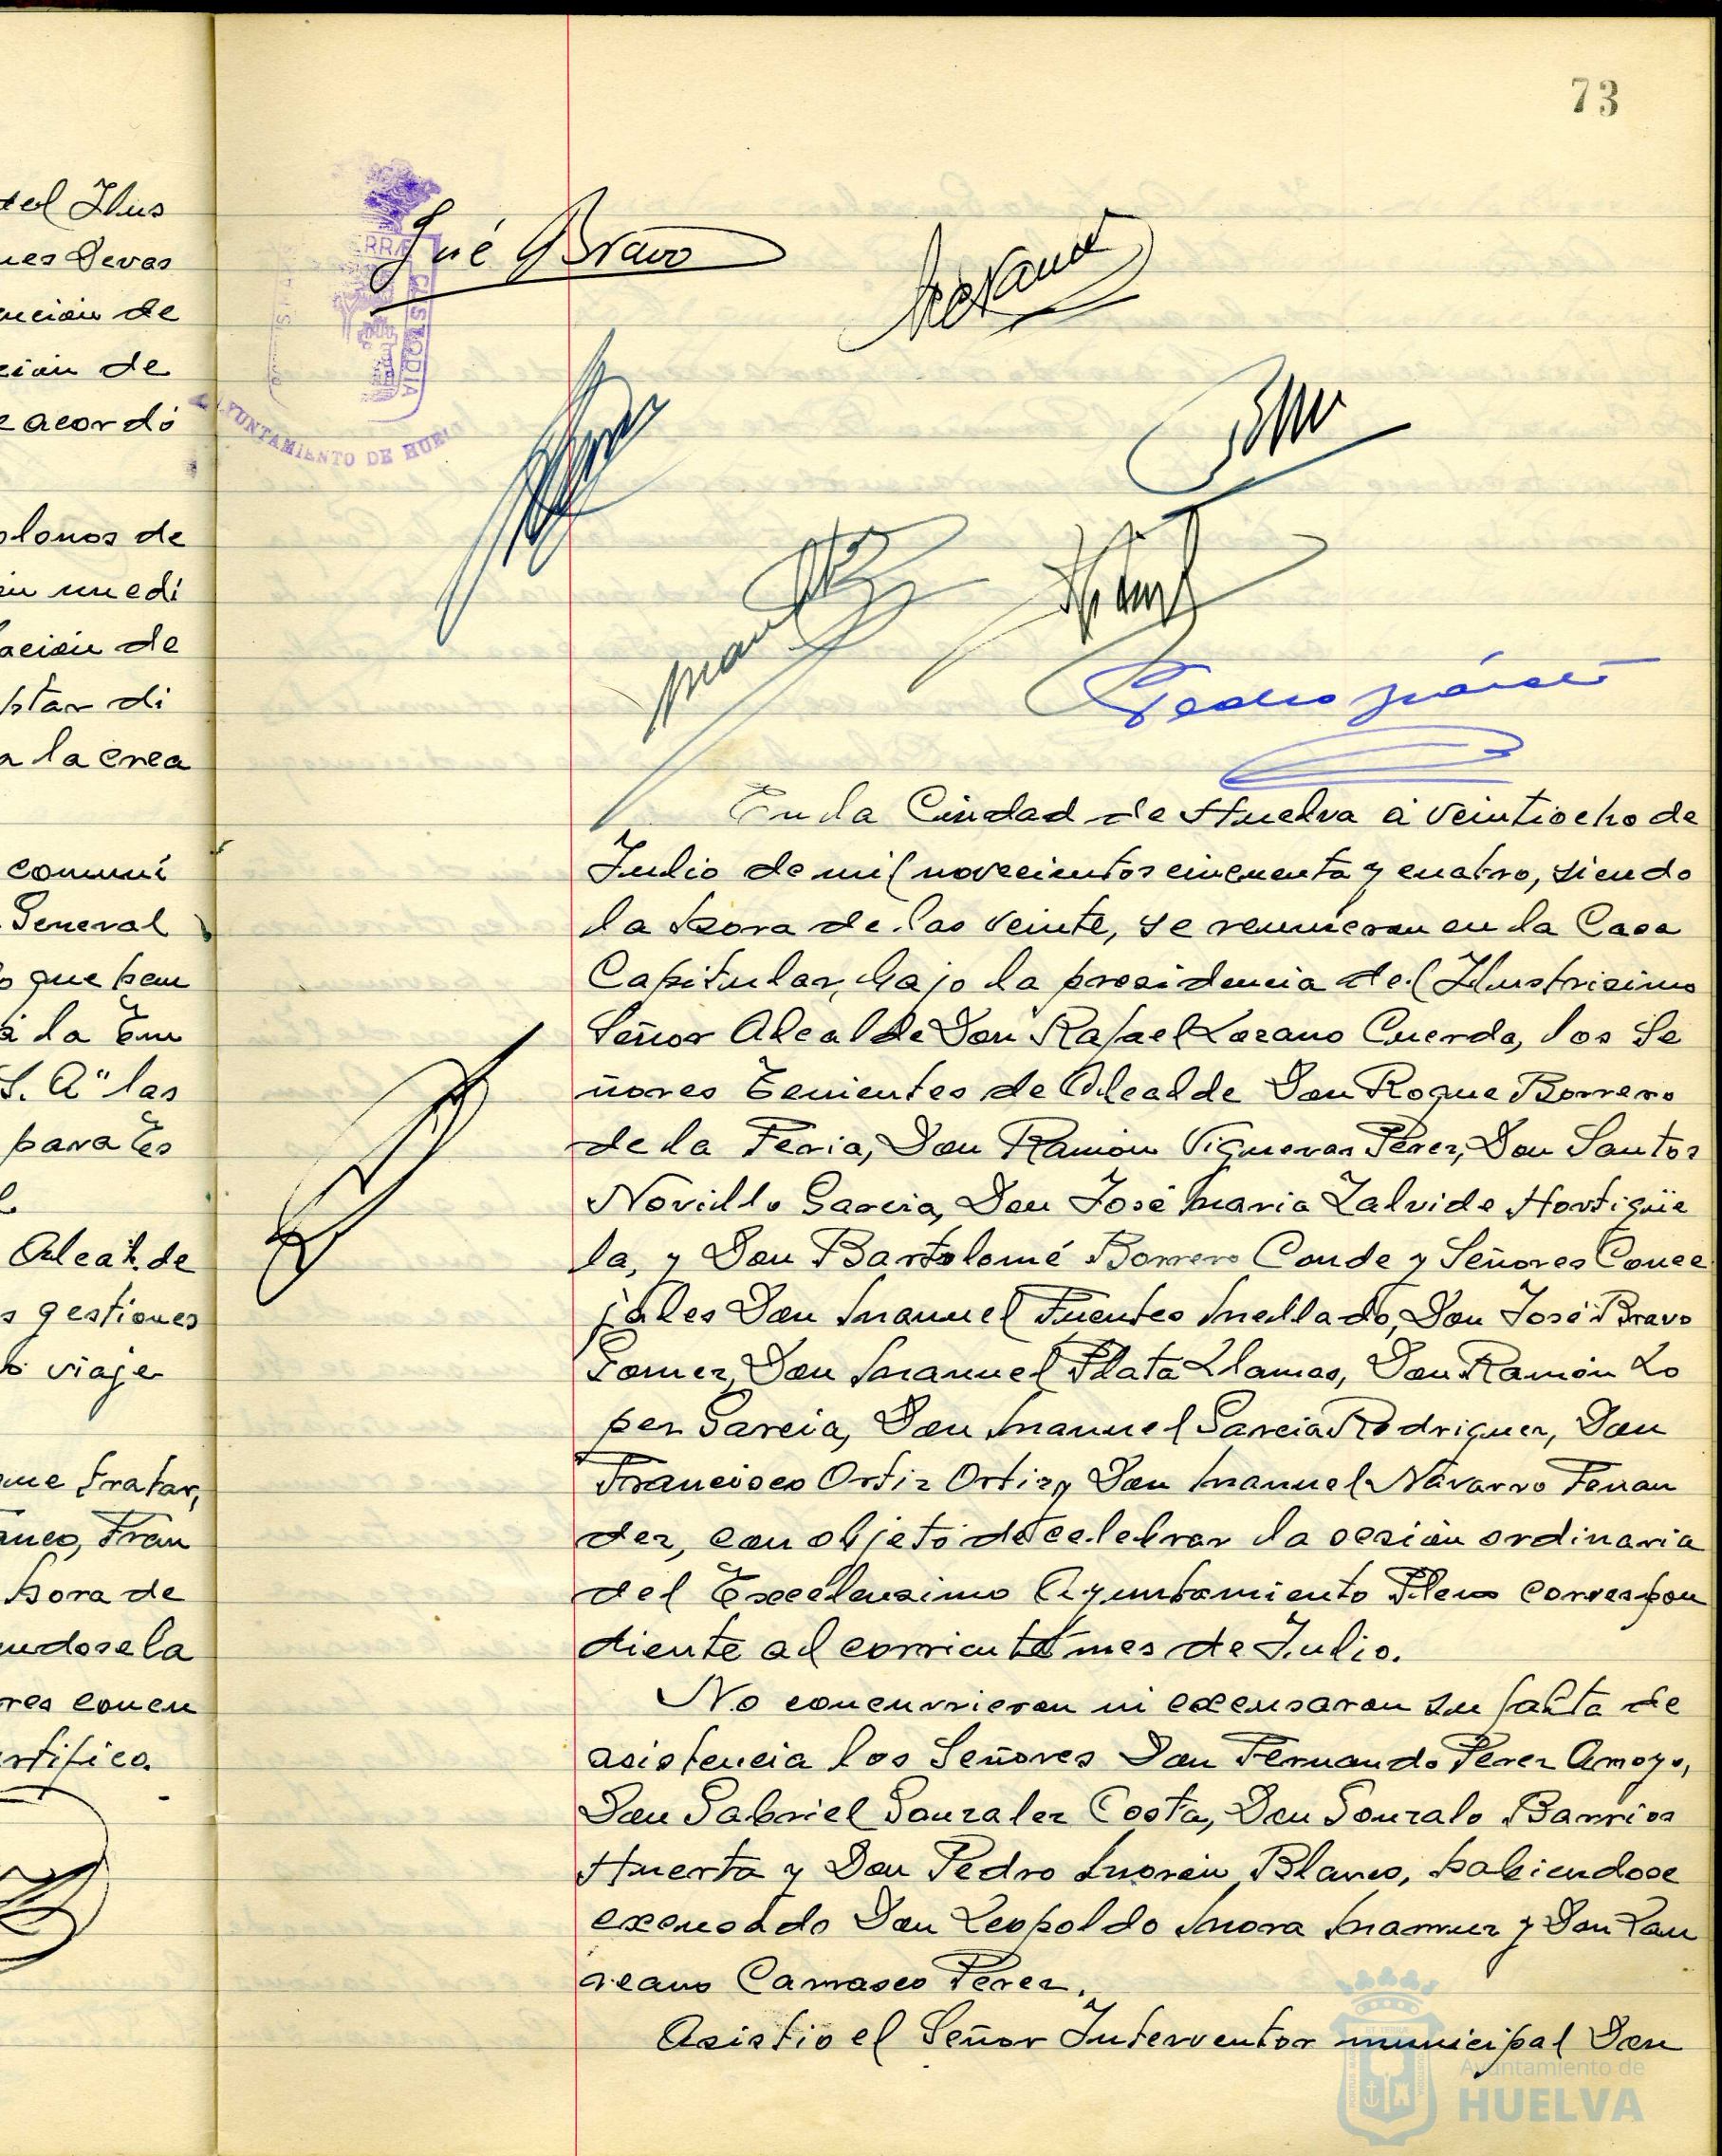 73
tel Ilus
nes Devas
ución de
ción de
e acordó
olonos de
en un edi
ación de
star di
a la crea
comuni
General
o que pen
á la Em
S. A" las
para Es
Alcalde
s gestiones
ó viaje
que tratar,
anco, Fran
hora de
endose la
res concu
rtifico.
José Bravo
RRAE
CUSTODIA
AYUNTAMIENTO DE HUELVA
En la Ciudad de Huelva á veintiocho de
Julio de mil novecientos cincuenta y cuatro, siendo
la hora de las veinte, se reunieron en la Casa
Capitular, bajo la presidencia del Ilustrisimo
Señor Alcalde Don Rafael Lozano Cuerda, los Se
ñores Tenientes de Alcalde Don Roque Borrero
de la Feria, Don Ramón Vigueras Pérez, Don Santos
Novillo Garcia, Don José Maria Zalvide Hortigüe
la, y Don Bartolomé Borrero Conde y Señores Conce
jales Don Manuel Fuentes Mellado, Don José Bravo
Gomez, Don Manuel Plata Llamas, Don Ramón Lo
pez Garcia, Don Manuel Garcia Rodriguez, Don
Francisco Ortiz Ortiz y Don Manuel Navarro Fernan
dez, con objeto de celebrar la sesión ordinaria
del Excelensimo Ayuntamiento Pleno correspon
diente al corriente mes de Julio.
No concurrieron ni excusaron su falta de
asistencia los Señores Don Fernando Perez Arroyo,
Don Gabriel Gonzalez Costa, Don Gonzalo Barrios
Huerta y Don Pedro Morón Blanco, habiendose
excusado Don Leopoldo Mora Mamruz y Don Lau
reano Carrasco Perez.
Asistió el Señor Interventor municipal Don
Ayuntamiento de
HUELVA